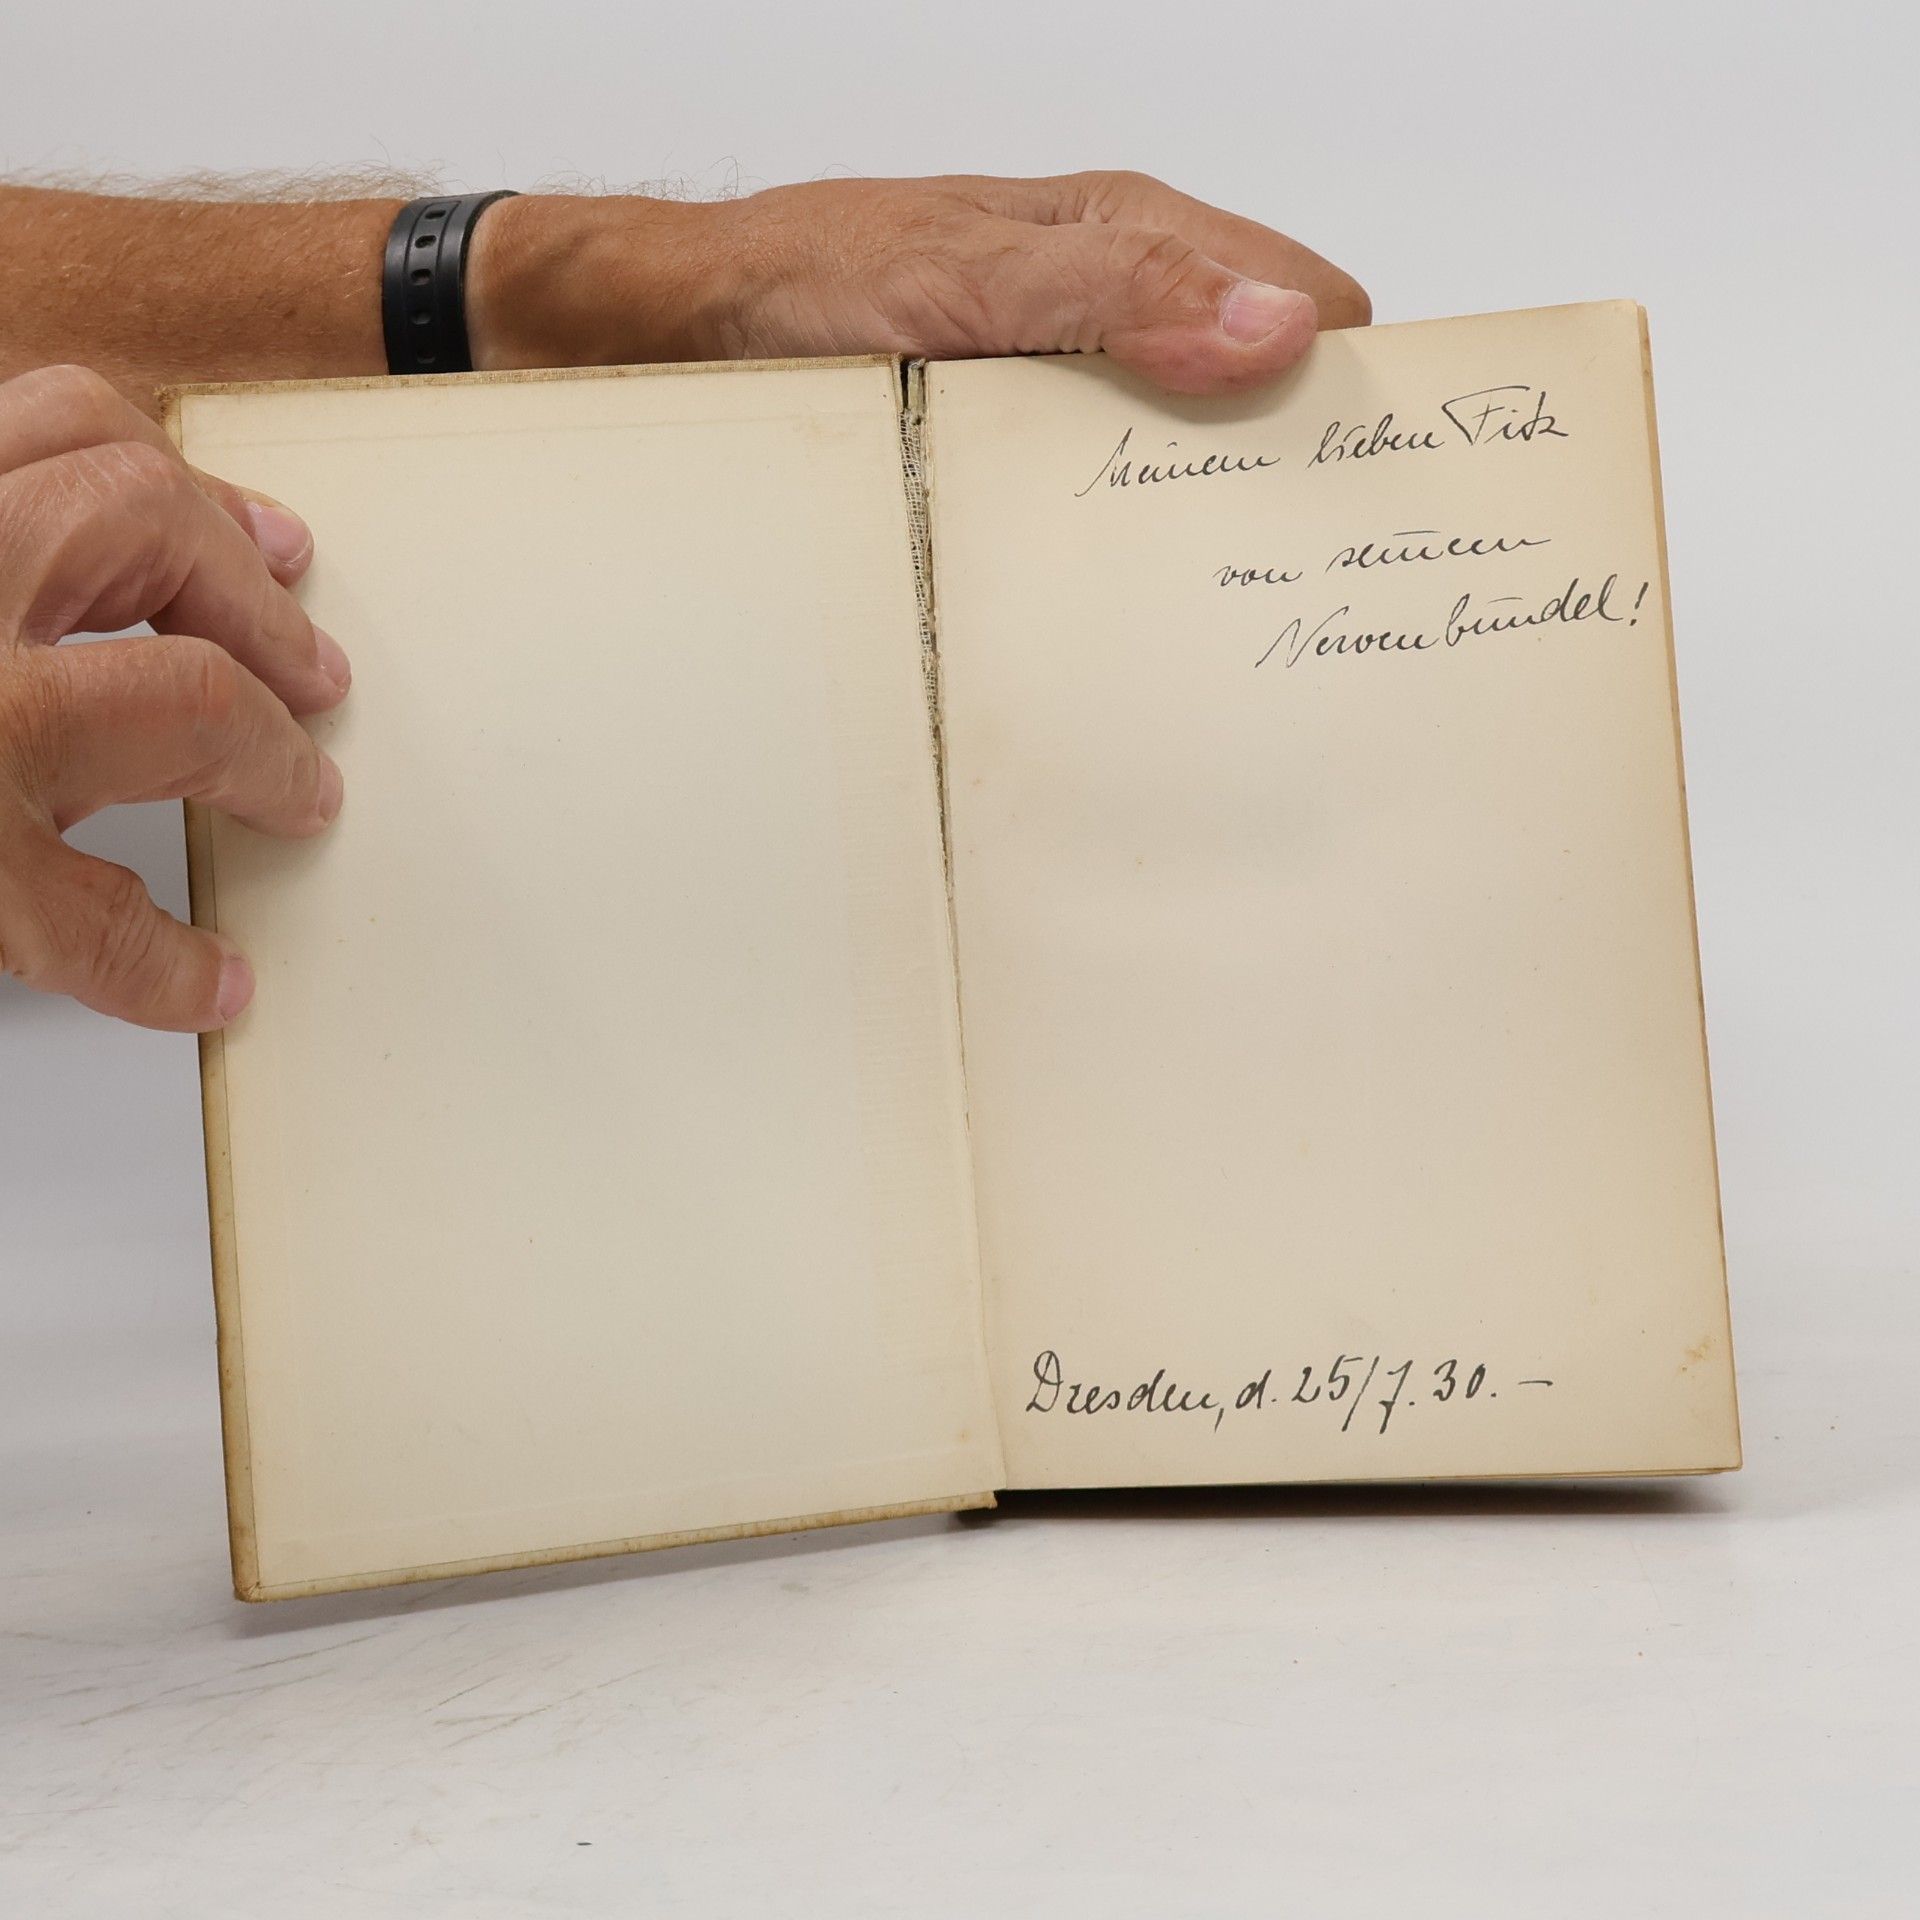 Meinem lieben Fitz
von seinem
Nervenbündel!
Dresden, d. 25/7. 30. —